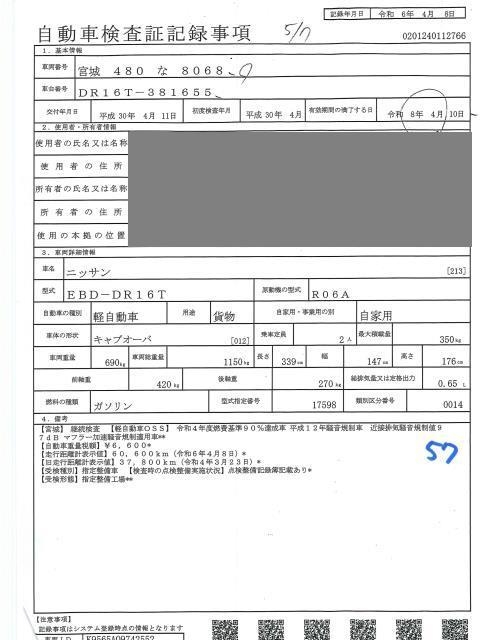 記録年月日 令和 6年 4月 8日
自動車検査証記録事項 5/7
0201240112766
1. 基本情報
車両番号 宮城 480 な 8068
車台番号 DR16T-381655
交付年月日 平成 30年 4月 11日 初度検査年月 平成 30年 4月 有効期間の満了する日 令和 8年 4月 10日
2. 使用者・所有者情報
使用者の氏名又は名称
使用者の住所
所有者の氏名又は名称
所有者の住所
使用の本拠の位置
3. 車両詳細情報
車名 ニッサン [213]
型式 EBD-DR16T 原動機の型式 R06A
自動車の種別 軽自動車 用途 貨物 自家用・事業用の別 自家用
車体の形状 キャブオーバ [012] 乗車定員 2人 最大積載量 350kg
車両重量 690kg 車両総重量 1150kg 長さ 339cm 幅 147cm 高さ 176cm
前軸重 420kg 後軸重 270kg 総排気量又は定格出力 0.65 L
燃料の種類 ガソリン 型式指定番号 17598 類別区分番号 0014
4. 備考
【宮城】 継続検査 【軽自動車OSS】 令和4年度燃費基準90%達成車 平成12年騒音規制車 近接排気騒音規制値9
7dB マフラー加速騒音規制適用車**
【自動車重量税額】 ¥6,600*
【走行距離計表示値】 60,600km (令和6年4月8日)*
【旧走行距離計表示値】 37,800km (令和4年3月23日)*
【受検種別】 指定整備車 【検査時の点検整備実施状況】 点検整備記録簿記載あり*
【受検形態】 指定整備工場**
57
【注意事項】
記録事項はシステム登録時点の情報となります